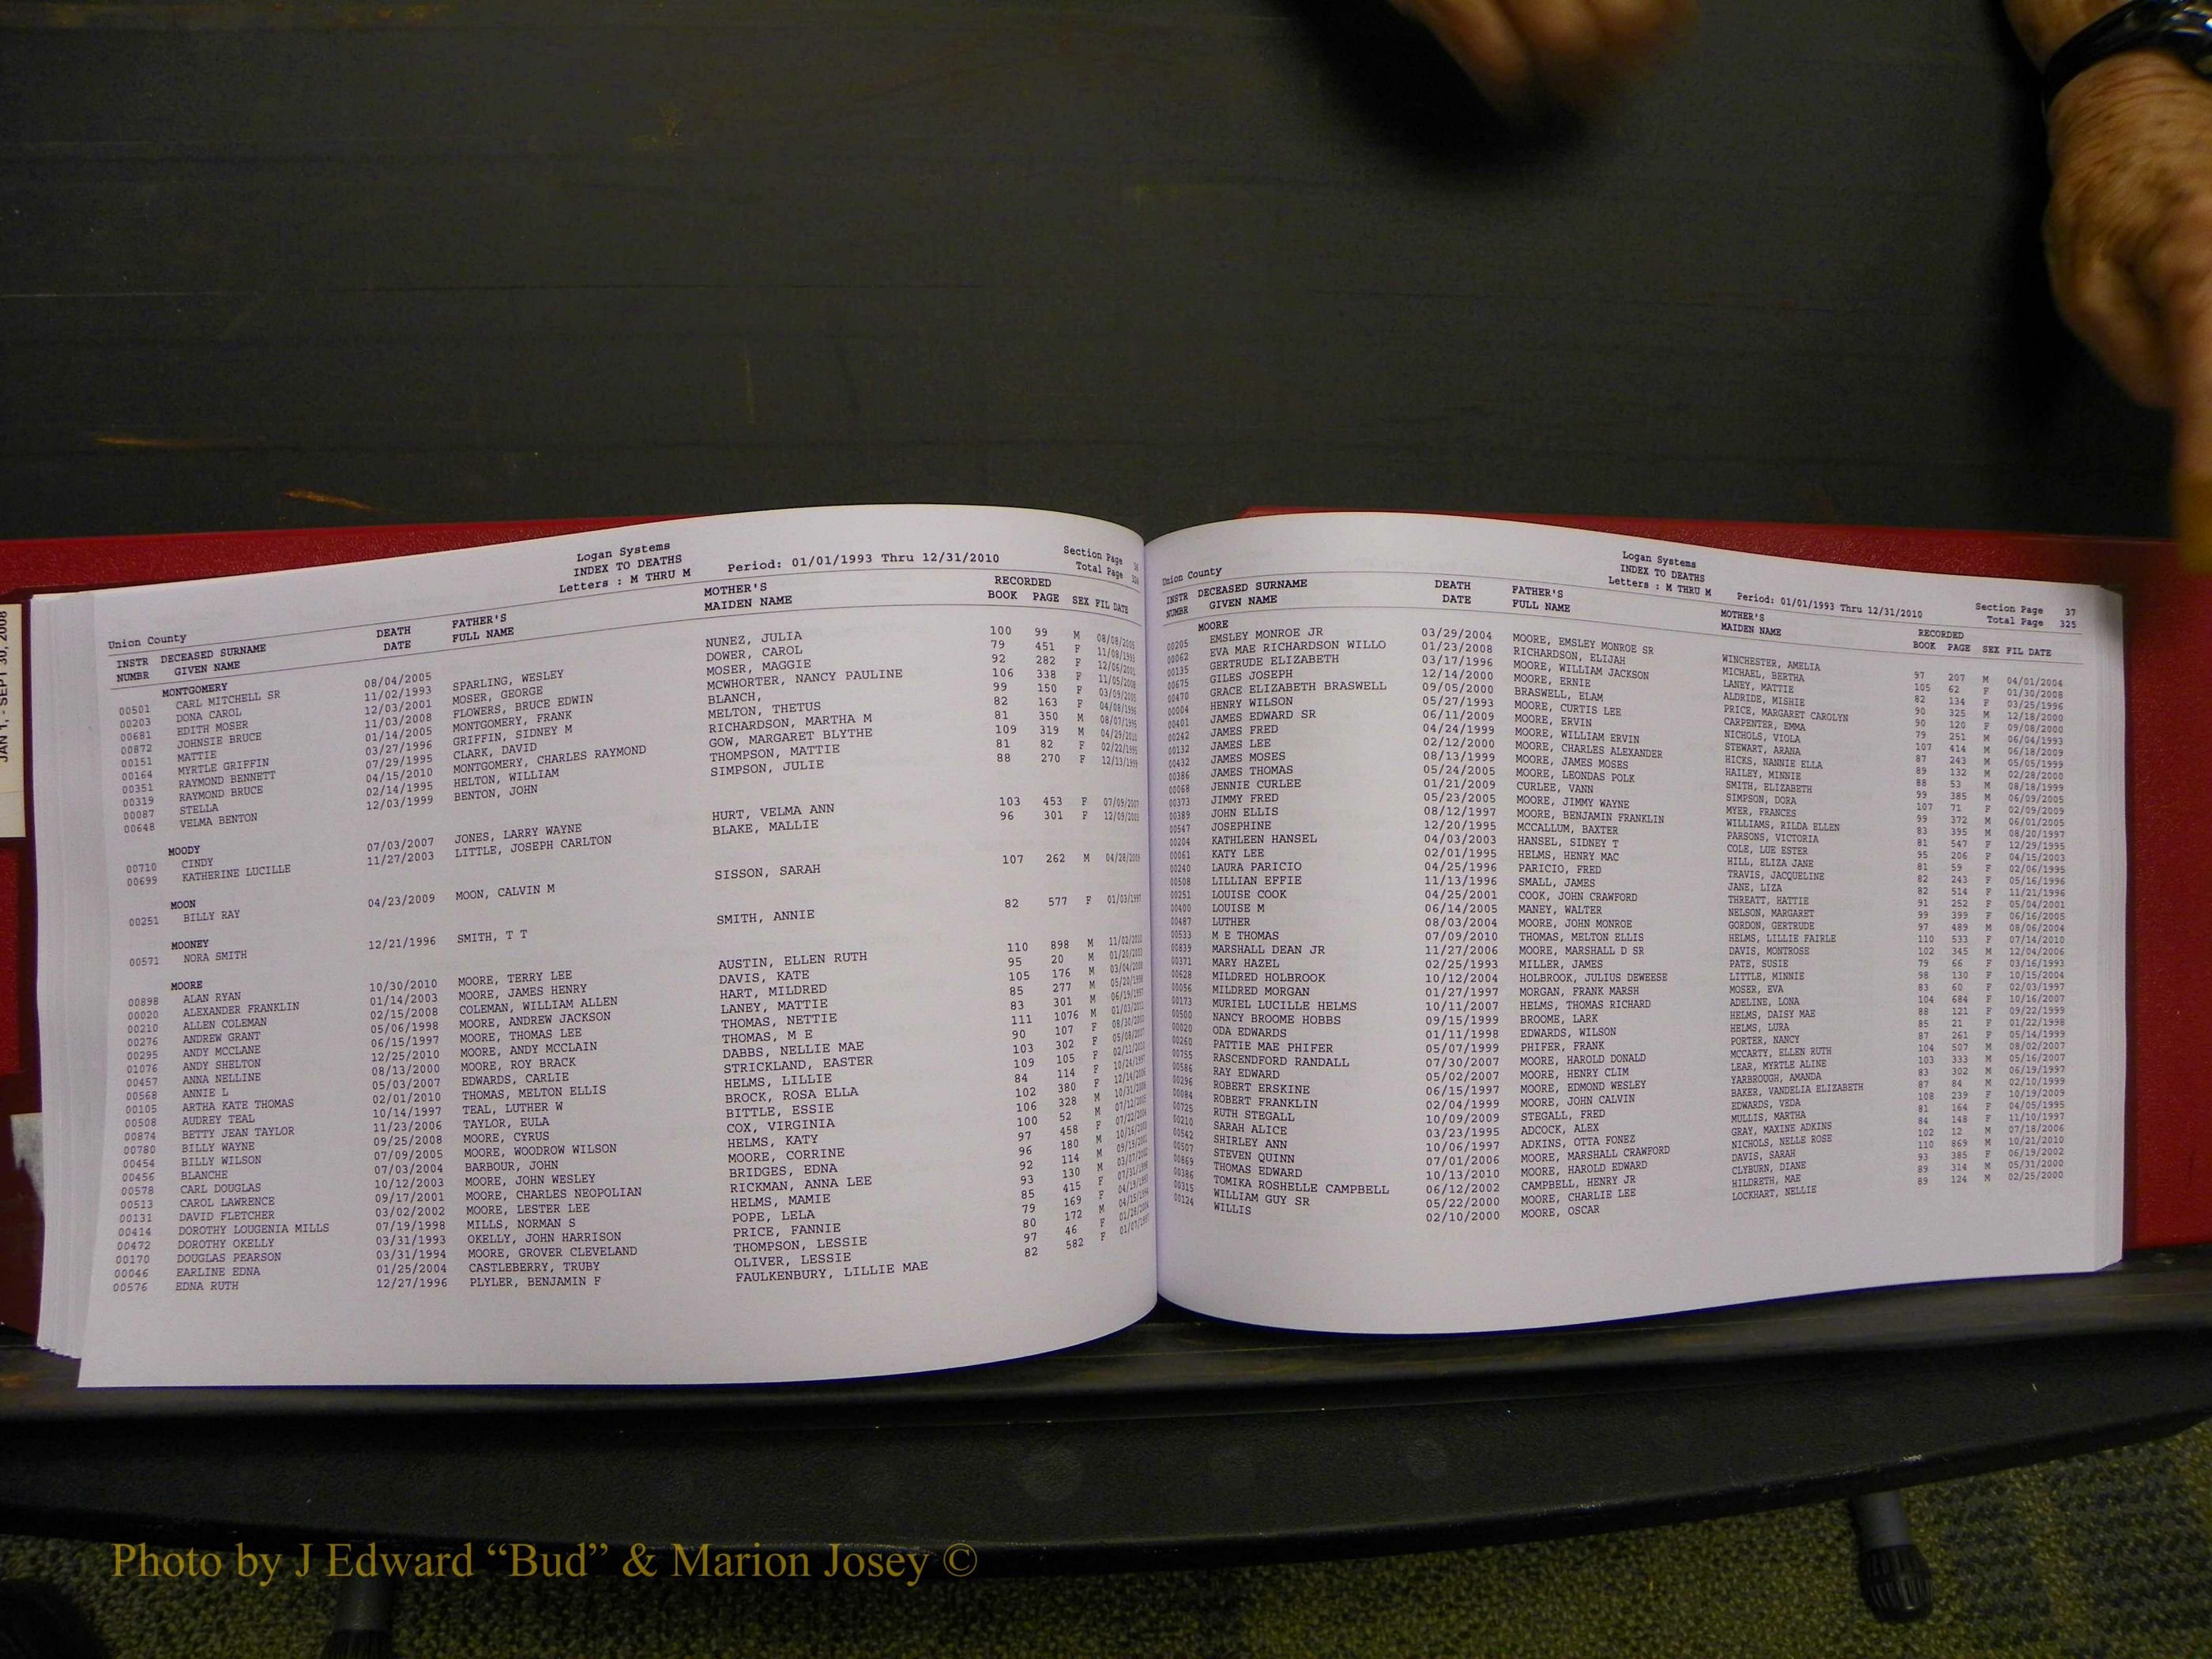 JAN 1, - SEPT 30, 2008
Logan Systems
INDEX TO DEATHS
Letters : M THRU M
Union County Period: 01/01/1993 Thru 12/31/2010 Section Page 36
Total Page 324
INSTR DECEASED SURNAME DEATH FATHER'S MOTHER'S RECORDED
NUMBR GIVEN NAME DATE FULL NAME MAIDEN NAME BOOK PAGE SEX FIL DATE
MONTGOMERY
00501 CARL MITCHELL SR 08/04/2005 NUNEZ, JULIA 100 99 M 08/08/2005
00203 DONA CAROL 11/02/1993 SPARLING, WESLEY DOWER, CAROL 79 451 F 11/08/1993
00681 EDITH MOSER 12/03/2001 MOSER, GEORGE MOSER, MAGGIE 92 282 F 12/06/2001
00872 JOHNSIE BRUCE 11/03/2008 FLOWERS, BRUCE EDWIN MCWHORTER, NANCY PAULINE 106 338 F 11/05/2008
00151 MATTIE 01/14/2005 MONTGOMERY, FRANK BLANCH, 99 150 F 03/09/2005
00164 MYRTLE GRIFFIN 03/27/1996 GRIFFIN, SIDNEY M MELTON, THETUS 82 163 F 04/08/1996
00351 RAYMOND BENNETT 07/29/1995 CLARK, DAVID RICHARDSON, MARTHA M 81 350 M 08/07/1995
00319 RAYMOND BRUCE 04/15/2010 MONTGOMERY, CHARLES RAYMOND GOW, MARGARET BLYTHE 109 319 M 04/29/2010
00087 STELLA 02/14/1995 HELTON, WILLIAM THOMPSON, MATTIE 81 82 F 02/22/1995
00648 VELMA BENTON 12/03/1999 BENTON, JOHN SIMPSON, JULIE 88 270 F 12/13/1999
MOODY
00710 CINDY 07/03/2007 JONES, LARRY WAYNE HURT, VELMA ANN 103 453 F 07/09/2007
00699 KATHERINE LUCILLE 11/27/2003 LITTLE, JOSEPH CARLTON BLAKE, MALLIE 96 301 F 12/09/2003
MOON
00251 BILLY RAY 04/23/2009 MOON, CALVIN M SISSON, SARAH 107 262 M 04/28/2009
MOONEY
00571 NORA SMITH 12/21/1996 SMITH, T T SMITH, ANNIE 82 577 F 01/03/1997
MOORE
00898 ALAN RYAN 10/30/2010 MOORE, TERRY LEE AUSTIN, ELLEN RUTH 110 898 M 11/02/2010
00020 ALEXANDER FRANKLIN 01/14/2003 MOORE, JAMES HENRY DAVIS, KATE 95 20 M 01/20/2003
00210 ALLEN COLEMAN 02/15/2008 COLEMAN, WILLIAM ALLEN HART, MILDRED 105 176 M 03/04/2008
00276 ANDREW GRANT 05/06/1998 MOORE, ANDREW JACKSON LANEY, MATTIE 85 277 M 05/20/1998
00295 ANDY MCCLANE 06/15/1997 MOORE, THOMAS LEE THOMAS, NETTIE 83 301 M 06/19/1997
01076 ANDY SHELTON 12/25/2010 MOORE, ANDY MCCLAIN THOMAS, M E 111 1076 M 01/03/2011
00457 ANNA NELLINE 08/13/2000 MOORE, ROY BRACK DABBS, NELLIE MAE 90 107 F 08/30/2000
00568 ANNIE L 05/03/2007 EDWARDS, CARLIE STRICKLAND, EASTER 103 302 F 05/08/2007
00105 ARTHA KATE THOMAS 02/01/2010 THOMAS, MELTON ELLIS HELMS, LILLIE 109 105 F 02/11/2010
00508 AUDREY TEAL 10/14/1997 TEAL, LUTHER W BROCK, ROSA ELLA 84 114 F 10/24/1997
00874 BETTY JEAN TAYLOR 11/23/2006 TAYLOR, EULA BITTLE, ESSIE 102 380 F 12/14/2006
00780 BILLY WAYNE 09/25/2008 MOORE, CYRUS COX, VIRGINIA 106 328 M 10/31/2008
00454 BILLY WILSON 07/09/2005 MOORE, WOODROW WILSON HELMS, KATY 100 52 M 07/12/2005
00456 BLANCHE 07/03/2004 BARBOUR, JOHN MOORE, CORRINE 97 458 F 07/22/2004
00578 CARL DOUGLAS 10/12/2003 MOORE, JOHN WESLEY BRIDGES, EDNA 96 180 M 10/16/2003
00513 CAROL LAWRENCE 09/17/2001 MOORE, CHARLES NEOPOLIAN RICKMAN, ANNA LEE 92 114 M 09/19/2001
00131 DAVID FLETCHER 03/02/2002 MOORE, LESTER LEE HELMS, MAMIE 93 130 M 03/07/2002
00414 DOROTHY LOUGENIA MILLS 07/19/1998 MILLS, NORMAN S POPE, LELA 85 415 F 07/31/1998
00472 DOROTHY OKELLY 03/31/1993 OKELLY, JOHN HARRISON PRICE, FANNIE 79 169 F 04/19/1993
00170 DOUGLAS PEARSON 03/31/1994 MOORE, GROVER CLEVELAND THOMPSON, LESSIE 80 172 M 04/15/1994
00046 EARLINE EDNA 01/25/2004 CASTLEBERRY, TRUBY OLIVER, LESSIE 97 46 F 01/28/2004
00576 EDNA RUTH 12/27/1996 PLYLER, BENJAMIN F FAULKENBURY, LILLIE MAE 82 582 F 01/07/1997
Logan Systems
INDEX TO DEATHS
Letters : M THRU M
Union County Period: 01/01/1993 Thru 12/31/2010 Section Page 37
Total Page 325
INSTR DECEASED SURNAME DEATH FATHER'S MOTHER'S RECORDED
NUMBR GIVEN NAME DATE FULL NAME MAIDEN NAME BOOK PAGE SEX FIL DATE
MOORE
00205 EMSLEY MONROE JR 03/29/2004 MOORE, EMSLEY MONROE SR WINCHESTER, AMELIA 97 207 M 04/01/2004
00062 EVA MAE RICHARDSON WILLO 01/23/2008 RICHARDSON, ELIJAH MICHAEL, BERTHA 105 62 F 01/30/2008
00135 GERTRUDE ELIZABETH 03/17/1996 MOORE, WILLIAM JACKSON LANEY, MATTIE 82 134 F 03/25/1996
00675 GILES JOSEPH 12/14/2000 MOORE, ERNIE ALDRIDE, MISHIE 90 325 M 12/18/2000
00470 GRACE ELIZABETH BRASWELL 09/05/2000 BRASWELL, ELAM PRICE, MARGARET CAROLYN 90 120 F 09/08/2000
00004 HENRY WILSON 05/27/1993 MOORE, CURTIS LEE CARPENTER, EMMA 79 251 M 06/04/1993
00401 JAMES EDWARD SR 06/11/2009 MOORE, ERVIN NICHOLS, VIOLA 107 414 M 06/18/2009
00242 JAMES FRED 04/24/1999 MOORE, WILLIAM ERVIN STEWART, ARANA 87 243 M 05/05/1999
00132 JAMES LEE 02/12/2000 MOORE, CHARLES ALEXANDER HICKS, NANNIE ELLA 89 132 M 02/28/2000
00432 JAMES MOSES 08/13/1999 MOORE, JAMES MOSES HAILEY, MINNIE 88 53 M 08/18/1999
00386 JAMES THOMAS 05/24/2005 MOORE, LEONDAS POLK SMITH, ELIZABETH 99 385 M 06/09/2005
00068 JENNIE CURLEE 01/21/2009 CURLEE, VANN SIMPSON, DORA 107 71 F 02/09/2009
00373 JIMMY FRED 05/23/2005 MOORE, JIMMY WAYNE MYER, FRANCES 99 372 M 06/01/2005
00389 JOHN ELLIS 08/12/1997 MOORE, BENJAMIN FRANKLIN WILLIAMS, RILDA ELLEN 83 395 M 08/20/1997
00547 JOSEPHINE 12/20/1995 MCCALLUM, BAXTER PARSONS, VICTORIA 81 547 F 12/29/1995
00204 KATHLEEN HANSEL 04/03/2003 HANSEL, SIDNEY T COLE, LUE ESTER 95 206 F 04/15/2003
00061 KATY LEE 02/01/1995 HELMS, HENRY MAC HILL, ELIZA JANE 81 59 F 02/06/1995
00240 LAURA PARICIO 04/25/1996 PARICIO, FRED TRAVIS, JACQUELINE 82 243 F 05/16/1996
00508 LILLIAN EFFIE 11/13/1996 SMALL, JAMES JANE, LIZA 82 514 F 11/21/1996
00251 LOUISE COOK 04/25/2001 COOK, JOHN CRAWFORD THREATT, HATTIE 91 252 F 05/04/2001
00400 LOUISE M 06/14/2005 MANEY, WALTER NELSON, MARGARET 99 399 F 06/16/2005
00487 LUTHER 08/03/2004 MOORE, JOHN MONROE GORDON, GERTRUDE 97 489 M 08/06/2004
00533 M E THOMAS 07/09/2010 THOMAS, MELTON ELLIS HELMS, LILLIE FAIRLE 110 533 F 07/14/2010
00839 MARSHALL DEAN JR 11/27/2006 MOORE, MARSHALL D SR DAVIS, MONTROSE 102 345 M 12/04/2006
00371 MARY HAZEL 02/25/1993 MILLER, JAMES PATE, SUSIE 79 66 F 03/16/1993
00628 MILDRED HOLBROOK 10/12/2004 HOLBROOK, JULIUS DEWEESE LITTLE, MINNIE 98 130 F 10/15/2004
00056 MILDRED MORGAN 01/27/1997 MORGAN, FRANK MARSH MOSER, EVA 83 60 F 02/03/1997
00173 MURIEL LUCILLE HELMS 10/11/2007 HELMS, THOMAS RICHARD ADELINE, LONA 104 684 F 10/16/2007
00500 NANCY BROOME HOBBS 09/15/1999 BROOME, LARK HELMS, DAISY MAE 88 121 F 09/22/1999
00020 ODA EDWARDS 01/11/1998 EDWARDS, WILSON HELMS, LURA 85 21 F 01/22/1998
00260 PATTIE MAE PHIFER 05/07/1999 PHIFER, FRANK PORTER, NANCY 87 261 F 05/14/1999
00755 RASCENDFORD RANDALL 07/30/2007 MOORE, HAROLD DONALD MCCARTY, ELLEN RUTH 104 507 M 08/02/2007
00586 RAY EDWARD 05/02/2007 MOORE, HENRY CLIM LEAR, MYRTLE ALINE 103 333 M 05/16/2007
00296 ROBERT ERSKINE 06/15/1997 MOORE, EDMOND WESLEY YARBROUGH, AMANDA 83 302 M 06/19/1997
00084 ROBERT FRANKLIN 02/04/1999 MOORE, JOHN CALVIN BAKER, VANDELIA ELIZABETH 87 84 M 02/10/1999
00725 RUTH STEGALL 10/09/2009 STEGALL, FRED EDWARDS, VEDA 108 239 F 10/19/2009
00210 SARAH ALICE 03/23/1995 ADCOCK, ALEX MULLIS, MARTHA 81 164 F 04/05/1995
00542 SHIRLEY ANN 10/06/1997 ADKINS, OTTA FONEZ GRAY, MAXINE ADKINS 84 148 F 11/10/1997
00507 STEVEN QUINN 07/01/2006 MOORE, MARSHALL CRAWFORD NICHOLS, NELLE ROSE 102 12 M 07/18/2006
00869 THOMAS EDWARD 10/13/2010 MOORE, HAROLD EDWARD DAVIS, SARAH 110 869 M 10/21/2010
00386 TOMIKA ROSHELLE CAMPBELL 06/12/2002 CAMPBELL, HENRY JR CLYBURN, DIANE 93 385 F 06/19/2002
00315 WILLIAM GUY SR 05/22/2000 MOORE, CHARLIE LEE HILDRETH, MAE 89 314 M 05/31/2000
00124 WILLIS 02/10/2000 MOORE, OSCAR LOCKHART, NELLIE 89 124 M 02/25/2000
Photo by J Edward “Bud” & Marion Josey ©